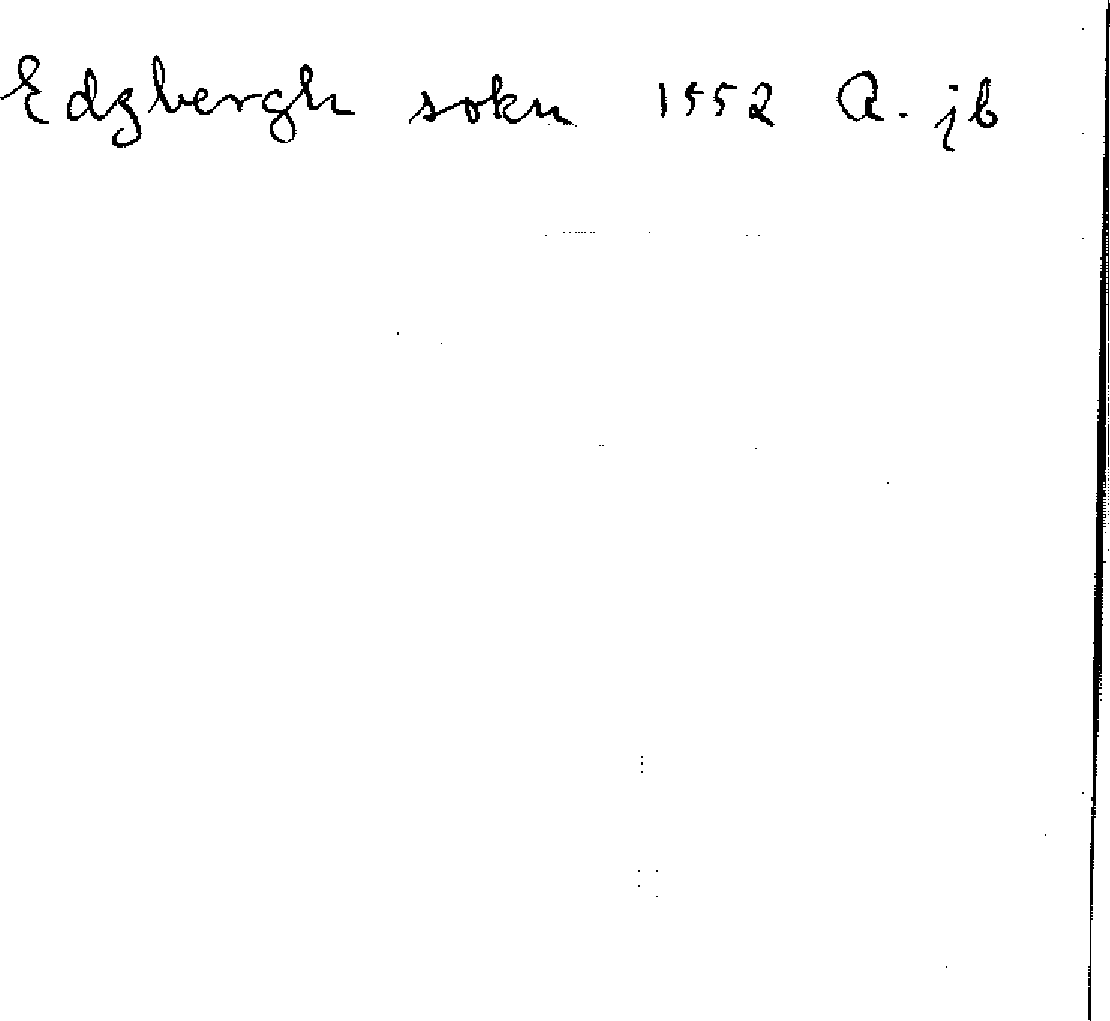 Edzbergh sokn 1552 A. jb